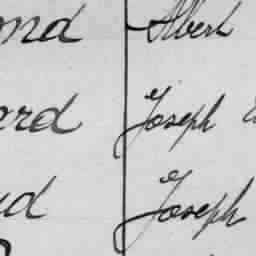 ond Albert
ard Joseph
d Joseph